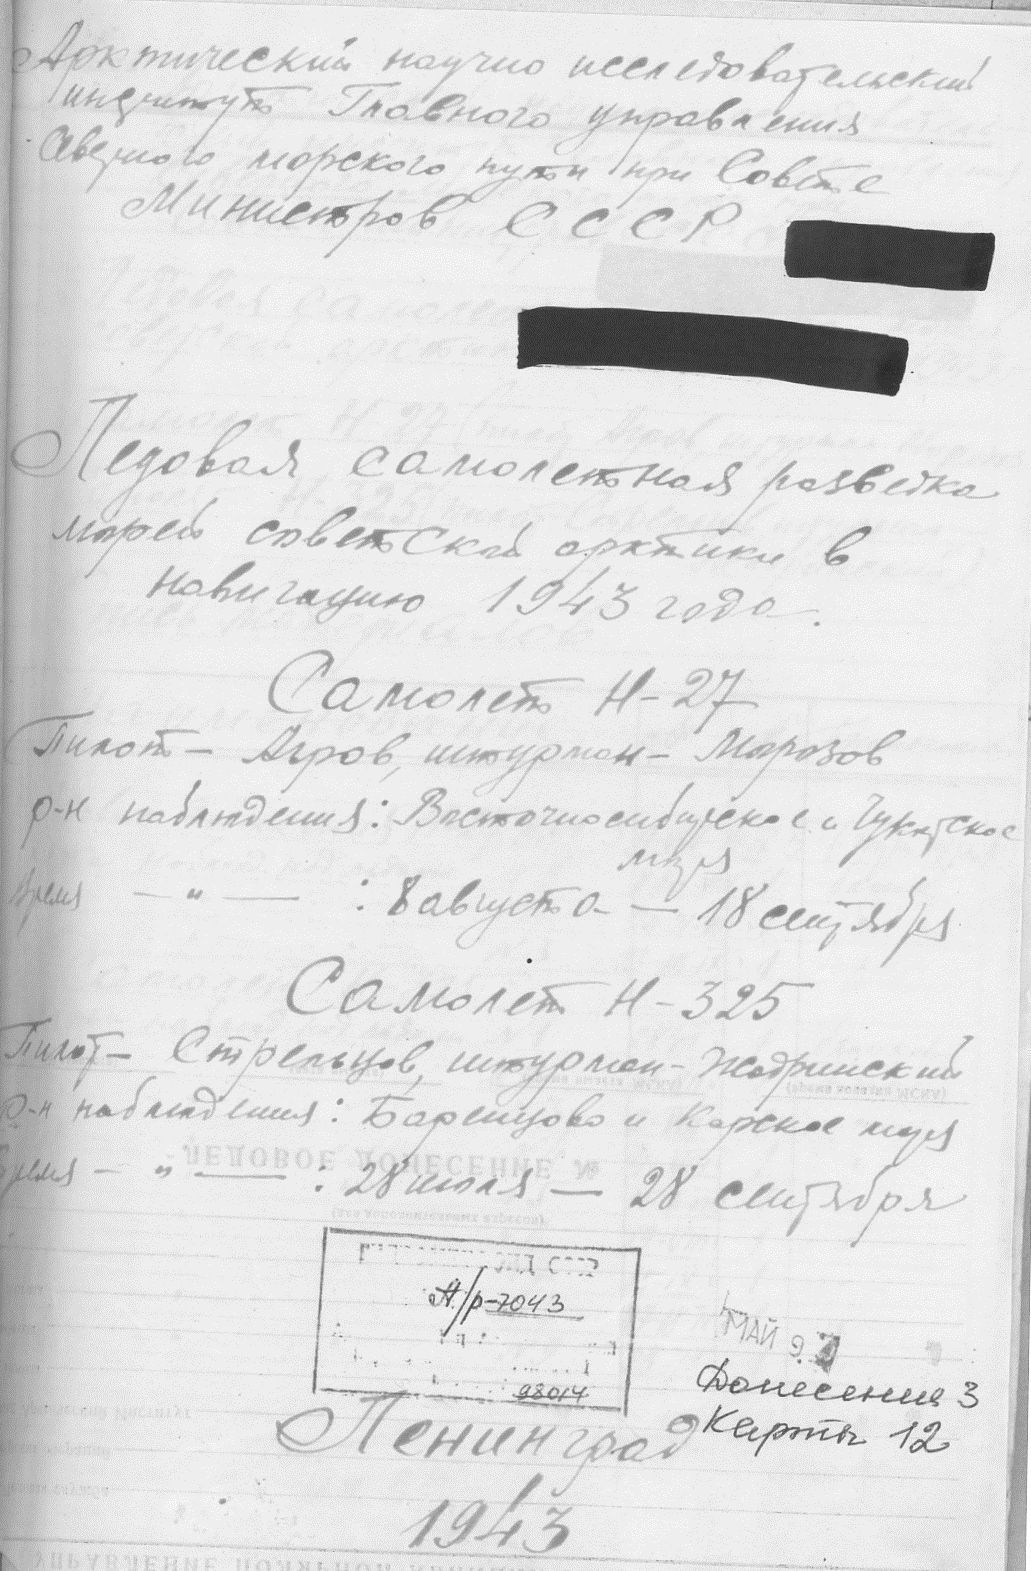 Арктический научно исследовательский
институт Главного управления
Северного морского пути при Совете
Министров СССР
Ледовая самолетная разведка
морей советской арктики в
навигацию 1943 года.
Самолет Н-27
Пилот – Агров, штурман – Морозов
р-н наблюдения: Восточносибирское и Чукотское
моря
Время — " — : 8 августа — 18 сентября
Самолет Н-325
Пилот – Стрельцов, штурман – Жадринский
р-н наблюдения: Баренцово и Карское моря
Время — " — : 28 июля — 28 сентября
ЛЕДОВОЕ ДОНЕСЕНИЕ №
А/р-7043
98014
МАЙ 9
Донесения 3
Карты 12
Ленинград
1943